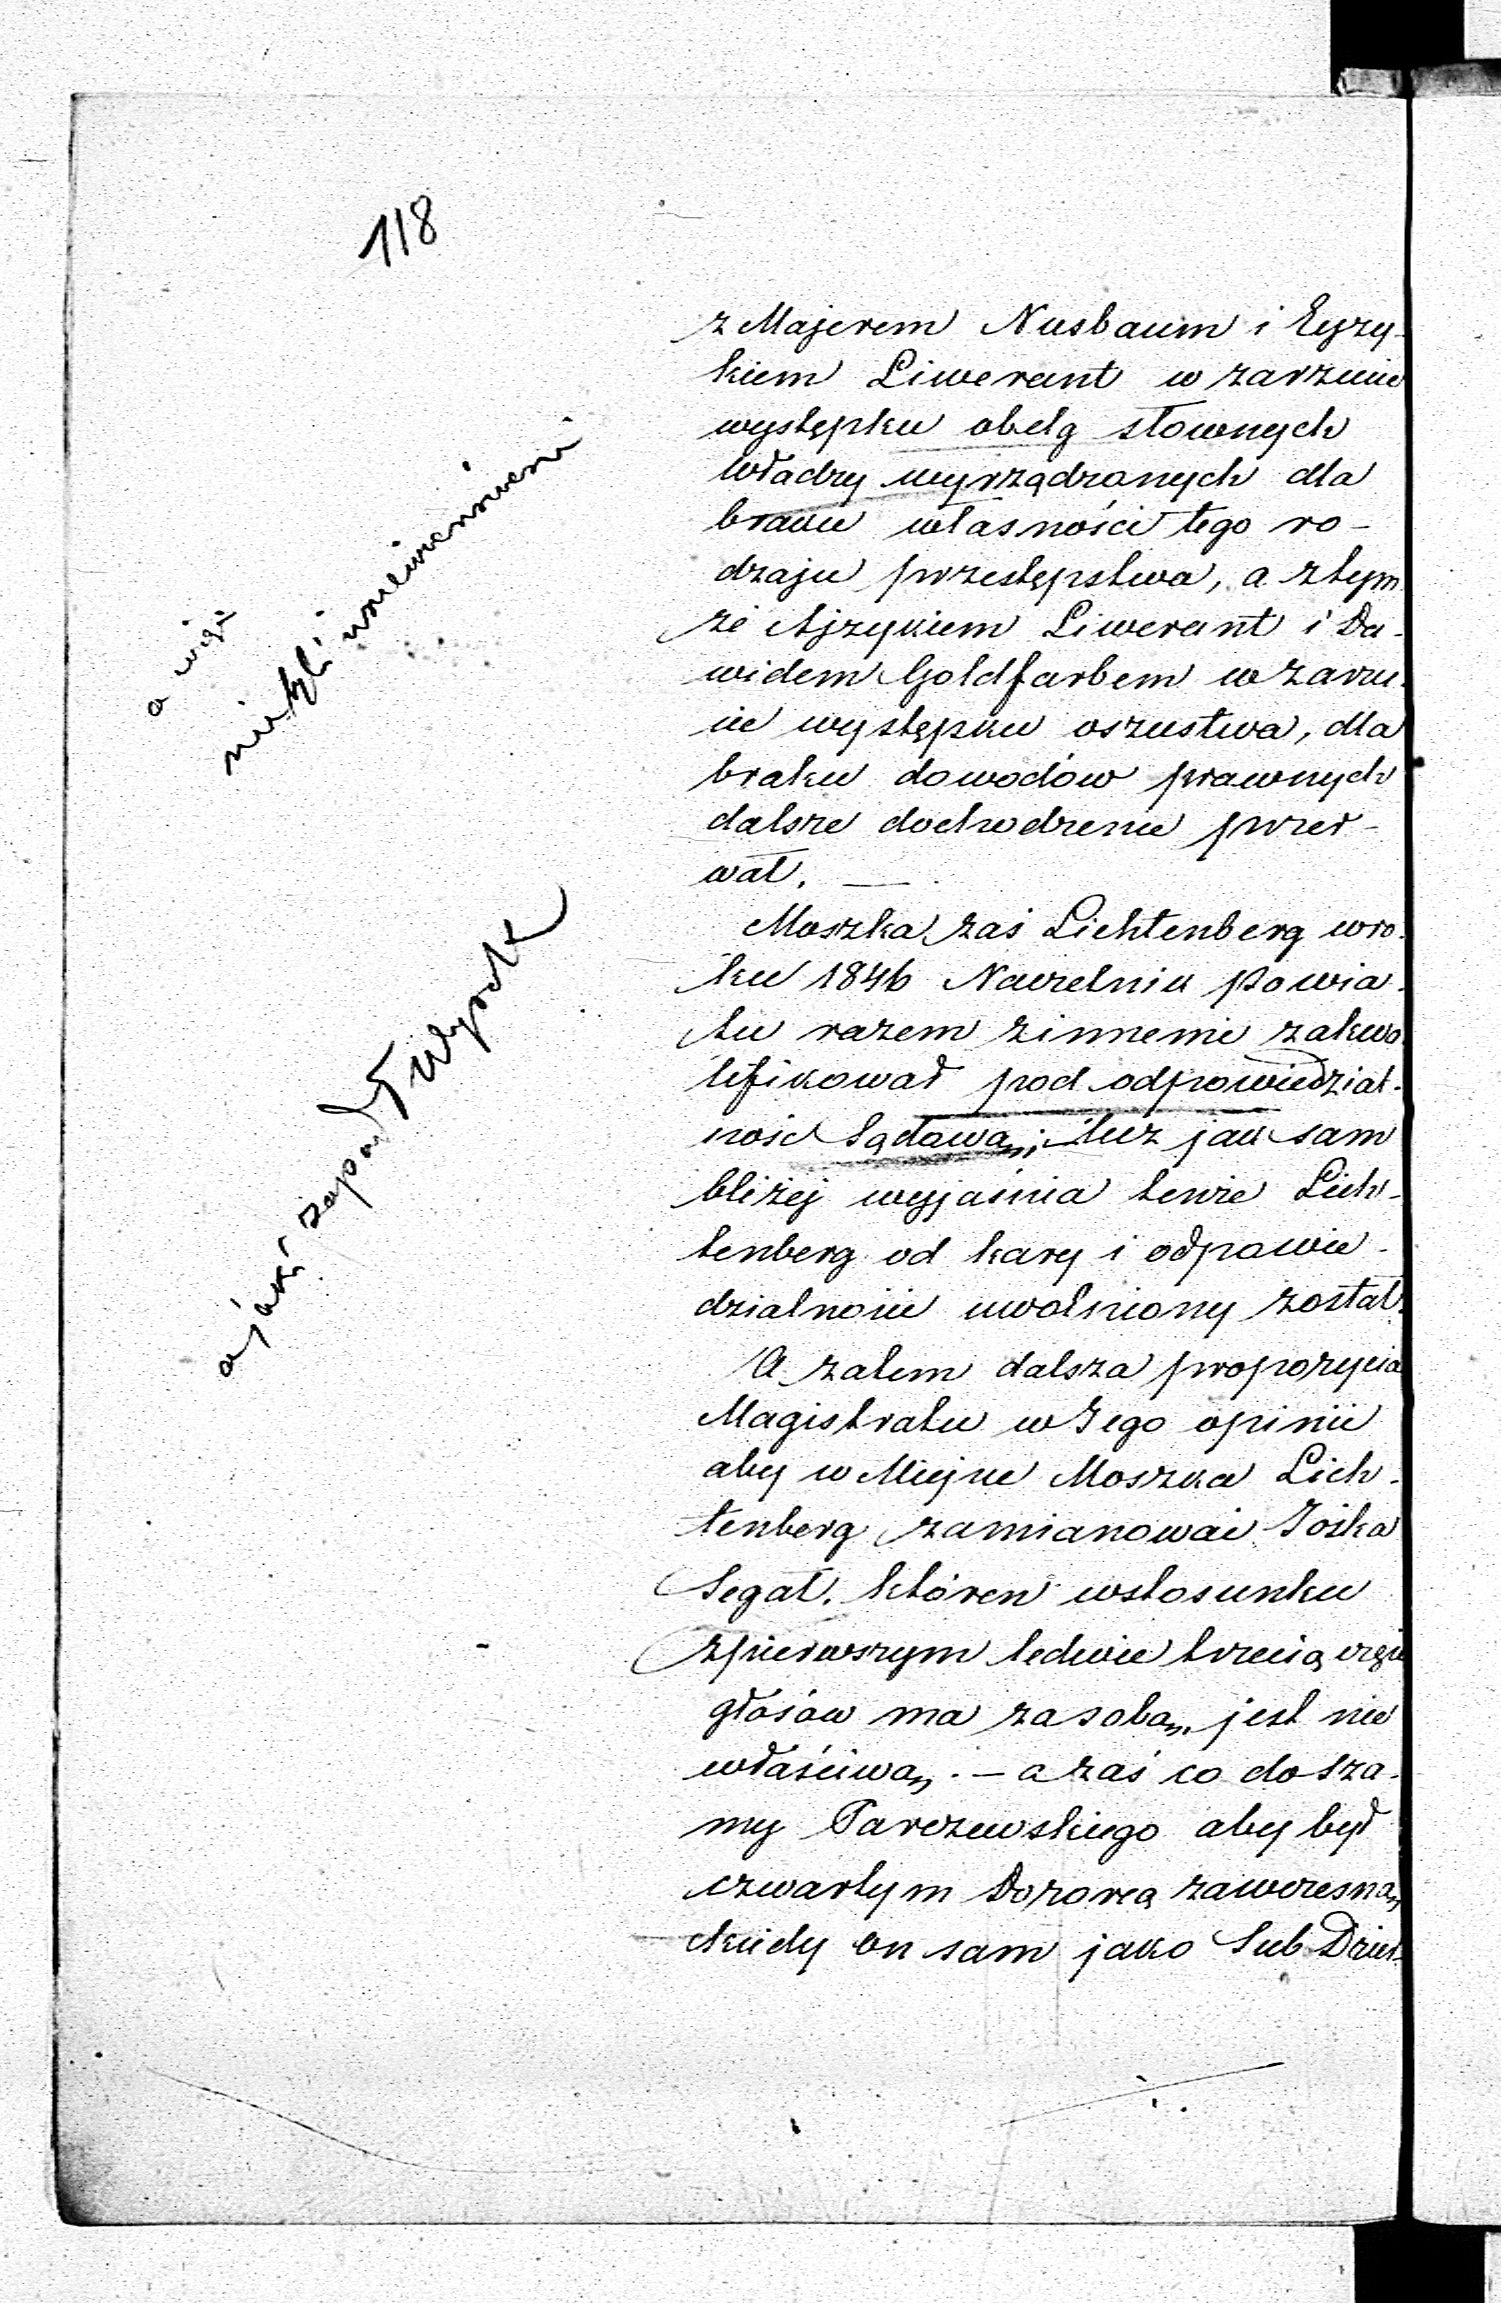 118
a więc
niebyli uniewinnieni
a jaki zapadł Wyrok
z Majerem Nusbaum i Eyzy-
kiem Liwerant w zarzucie
występku obelg słownych
Władzy wyrządzonych dla
braku własności tego ro-
dzaju przestępstwa, a z tym
że Ajzykiem Liwerant i Da-
widem Goldfarbem w zarzu-
cie występku oszustwa, dla
braku dowodów prawnych
dalsze dochodzenie przer-
wał. —
Moszka zaś Lichtenberg w ro-
ku 1846 Naczelnik Powia-
tu razem z innemi zakwa-
lifikował pod odpowiedzial-
ność Sądową; lecz jak sam
bliżej wyjaśnia tenże Lich-
tenberg od kary i odpowie-
dzialności uwolniony został.
A zatem dalsza propozycia
Magistratu w Jego opinii
aby w Miejsce Moszka Lich-
tenberg zamianować Jośka
Segał. któren w stosunku
z pierwszym ledwie trzecią część
głosów ma za sobą, jest nie
właściwą. — a zaś co do Sza-
my Parczewskiego aby był
czwartym Dozorcą zawczesną,
kiedy on sam jako Sub Dzier-